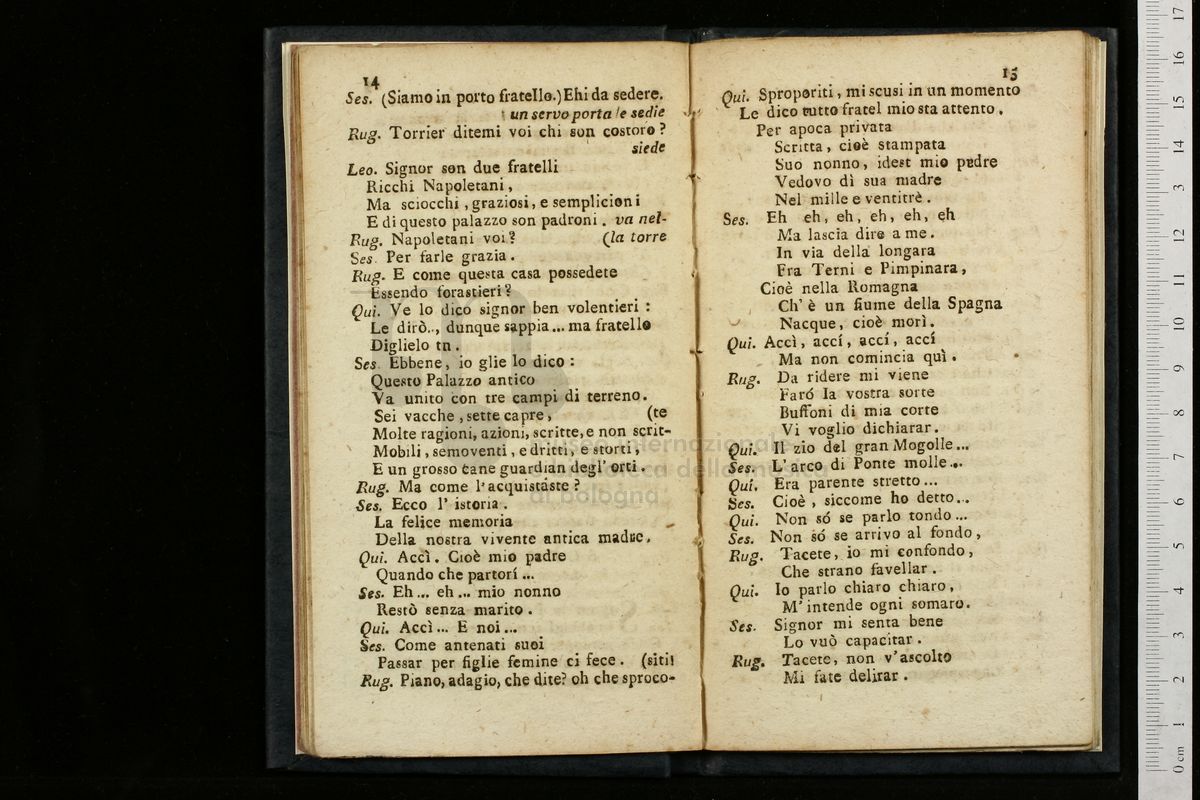 14
Ses. (Siamo in porto fratello.) Ehi da sedere.
un servo porta le sedie
Rug. Torrier ditemi voi chi son costoro ?
siede
Leo. Signor son due fratelli
Ricchi Napoletani ,
Ma sciocchi , graziosi, e semplicioni
E di questo palazzo son padroni . va nel-
Rug. Napoletani voi ? (la torre
Ses. Per farle grazia .
Rug. E come questa casa possedete
Essendo forastieri ?
Qui. Ve lo dico signor ben volentieri :
Le dirò.., dunque sappia... ma fratello
Diglielo tn .
Ses. Ebbene, io glie lo dico :
Questo Palazzo antico
Va unito con tre campi di terreno.
Sei vacche , sette capre , (te
Molte ragioni, azioni, scritte, e non scrit-
Mobili , semoventi , e dritti, e storti ,
E un grosso cane guardian degl' orti .
Rug. Ma come l'acquistaste ?
Ses. Ecco l' istoria .
La felice memoria
Della nostra vivente antica madre.
Qui. Accì . Cioè mio padre
Quando che partorí ...
Ses. Eh ... eh ... mio nonno
Restò senza marito .
Qui. Accì ... E noi ...
Ses. Come antenati suoi
Passar per figlie femine ci fece . (siti!
Rug. Piano, adagio, che dite? oh che sproco-
15
Qui. Sproporiti , mi scusi in un momento
Le dico tutto fratel mio sta attento .
Per apoca privata
Scritta , cioè stampata
Suo nonno, idest mio padre
Vedovo dì sua madre
Nel mille e ventitrè .
Ses. Eh eh, eh, eh, eh, eh
Ma lascia dire a me .
In via della longara
Fra Terni e Pimpinara,
Cioè nella Romagna
Ch' è un fiume della Spagna
Nacque, cioè morì .
Qui. Accì, accí, accí, accí
Ma non comincia quì .
Rug. Da ridere mi viene
Faró la vostra sorte
Buffoni di mia corte
Vi voglio dichiarar.
Qui. Il zio del gran Mogolle ...
Ses. L' arco di Ponte molle ...
Qui. Era parente stretto ...
Ses. Cioè , siccome ho detto ...
Qui. Non só se parlo tondo ...
Ses. Non só se arrivo al fondo ,
Rug. Tacete, io mi confondo ,
Che strano favellar .
Qui. Io parlo chiaro chiaro ,
M' intende ogni somaro.
Ses. Signor mi senta bene
Lo vuò capacitar .
Rug. Tacete, non v'ascolto
Mi fate delirar .
museo internazionale
e biblioteca della musica
di bologna
0 cm 1 2 3 4 5 6 7 8 9 10 11 12 13 14 15 16 17